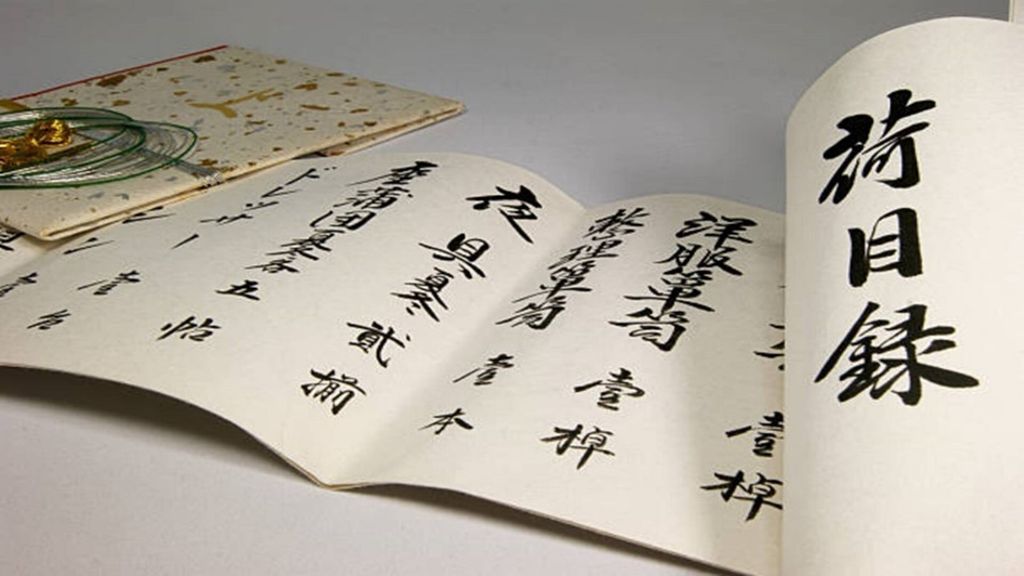 荷目録
壹棹
洋服箪笥 壹棹
整理箪笥 壹本
夜具夏冬 貳揃
座蒲団夏冬 五帖
ドレッサー 壹台